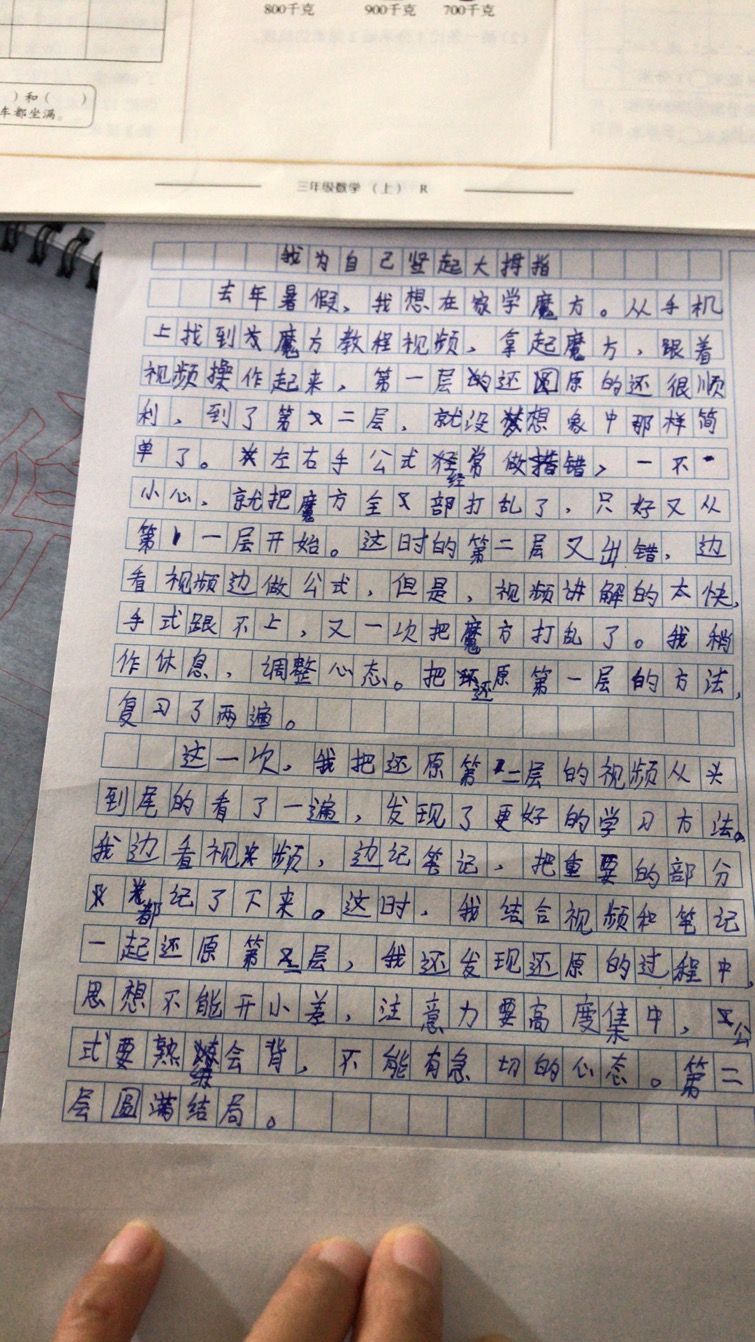 800千克 900千克 700千克
)和( )
车都坐满。
三年级数学(上) R
我为自己竖起大拇指
去年暑假,我想在家学魔方。从手机
上找到魔方教程视频,拿起魔方,跟着
视频操作起来,第一层的还原的还很顺
利,到了第二层,就没想象中那样简
单了。左右手公式经常做错,一不
小心,就把魔方全部打乱了,只好又从
第一层开始。这时的第二层又出错,边
看视频边做公式,但是,视频讲解的太快,
手式跟不上,又一次把魔方打乱了。我稍
作休息,调整心态。把还原第一层的方法,
复习了两遍。
这一次,我把还原第二层的视频从头
到尾的看了一遍,发现了更好的学习方法。
我边看视频,边记笔记,把重要的部分
都记了下来。这时,我结合视频和笔记
一起还原第二层,我还发现还原的过程中,
思想不能开小差,注意力要高度集中,公
式要熟练会背,不能有急切的心态。第二
层圆满结局。